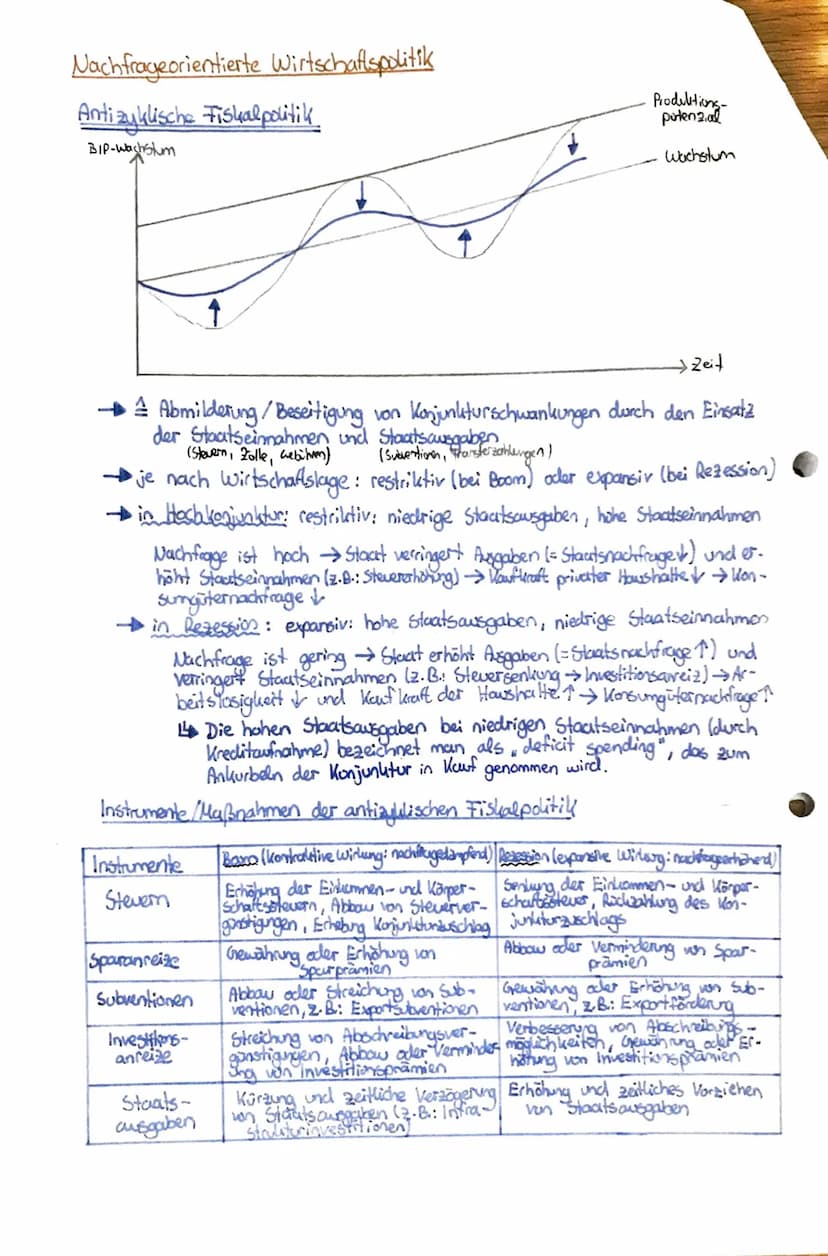 Nachfrageorientierte Wirtschaftspolitik
Antizyklische Fiskalpolitik
BIP-Wachstum
Produktions-
potenzial
Wachstum
Zeit
→ ≙ Abmilderung/Beseitigung von Konjunkturschwankungen durch den Einsatz
der Staatseinnahmen und Staatsausgaben
(Steuern, Zölle, Gebühren) (Subventionen, Transferzahlungen)
→ je nach Wirtschaftslage: restriktiv (bei Boom) oder expansiv (bei Rezession)
→ in Hochkonjunktur: restriktiv: niedrige Staatsausgaben, hohe Staatseinnahmen
Nachfrage ist hoch → Staat verringert Ausgaben (= Staatsnachfrage↓) und er-
höht Staatseinnahmen (z.B.: Steuererhöhung) → Kaufkraft privater Haushalte ↓ → Kon-
sumgüternachfrage ↓
→ in Rezession: expansiv: hohe Staatsausgaben, niedrige Staatseinnahmen
Nachfrage ist gering → Staat erhöht Ausgaben (= Staatsnachfrage ↑) und
verringert Staatseinnahmen (z.B.: Steuersenkung → Investitionsanreiz) → Ar-
beitslosigkeit ↓ und Kaufkraft der Haushalte ↑ → Konsumgüternachfrage ↑
↳ Die hohen Staatsausgaben bei niedrigen Staatseinnahmen (durch
Kreditaufnahme) bezeichnet man als „deficit spending", das zum
Ankurbeln der Konjunktur in Kauf genommen wird.
Instrumente/Maßnahmen der antizyklischen Fiskalpolitik
Instrumente | Boom (kontraktive Wirkung: nachfragedämpfend) | Rezession (expansive Wirkung: nachfrageerhöhend)
Steuern
Erhöhung der Einkommen- und Körper-
schaftssteuern, Abbau von Steuerver-
günstigungen, Erhebung Konjunkturzuschlag
Senkung der Einkommen- und Körper-
schaftssteuer, Rückzahlung des Kon-
junkturzuschlags
Sparanreize
Gewährung oder Erhöhung von
Sparprämien
Abbau oder Verminderung von Spar-
prämien
Subventionen
Abbau oder Streichung von Sub-
ventionen, z.B.: Exportsubventionen
Gewährung oder Erhöhung von Sub-
ventionen, z.B.: Exportförderung
Investitions-
anreize
Streichung von Abschreibungsver-
günstigungen, Abbau oder Verminder-
ung von Investitionsprämien
Verbesserung von Abschreibungs-
möglichkeiten, Gewährung oder Er-
höhung von Investitionsprämien
Staats-
ausgaben
Kürzung und zeitliche Verzögerung
von Staatsausgaben (z.B.: Infra-
strukturinvestitionen)
Erhöhung und zeitliches Vorziehen
von Staatsausgaben